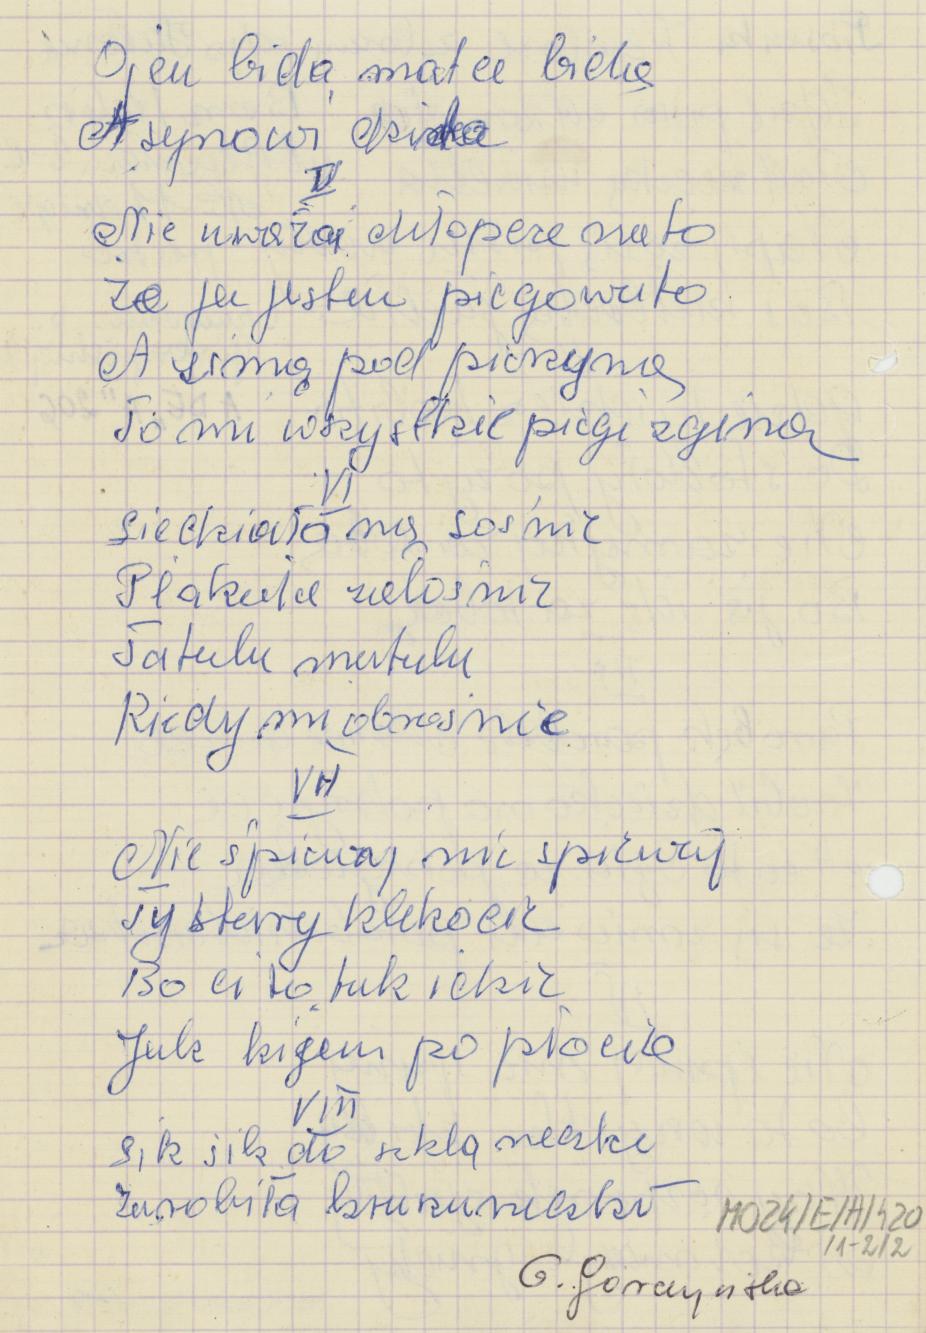 Ojcu bida matce bida
A synowi dzida
V
Nie uważaj chłopcze na to
Że ja jestem piegowato
A zimą pod pierzyną
To mi wszystkie piegi zginą
VI
Siedziała na sośnie
Płakała żałośnie
Tatulu matulu
Kiedy mi obrośnie
VII
Nie śpiwaj nie spiwaj
Ty stary klekocie
Bo ci to tak idzie
Jak kijem po płocie
VIII
Sik sik do szklaneczki
Zarobiła
MOZK/E/A/420
/1-2/2
G. Górczyńska